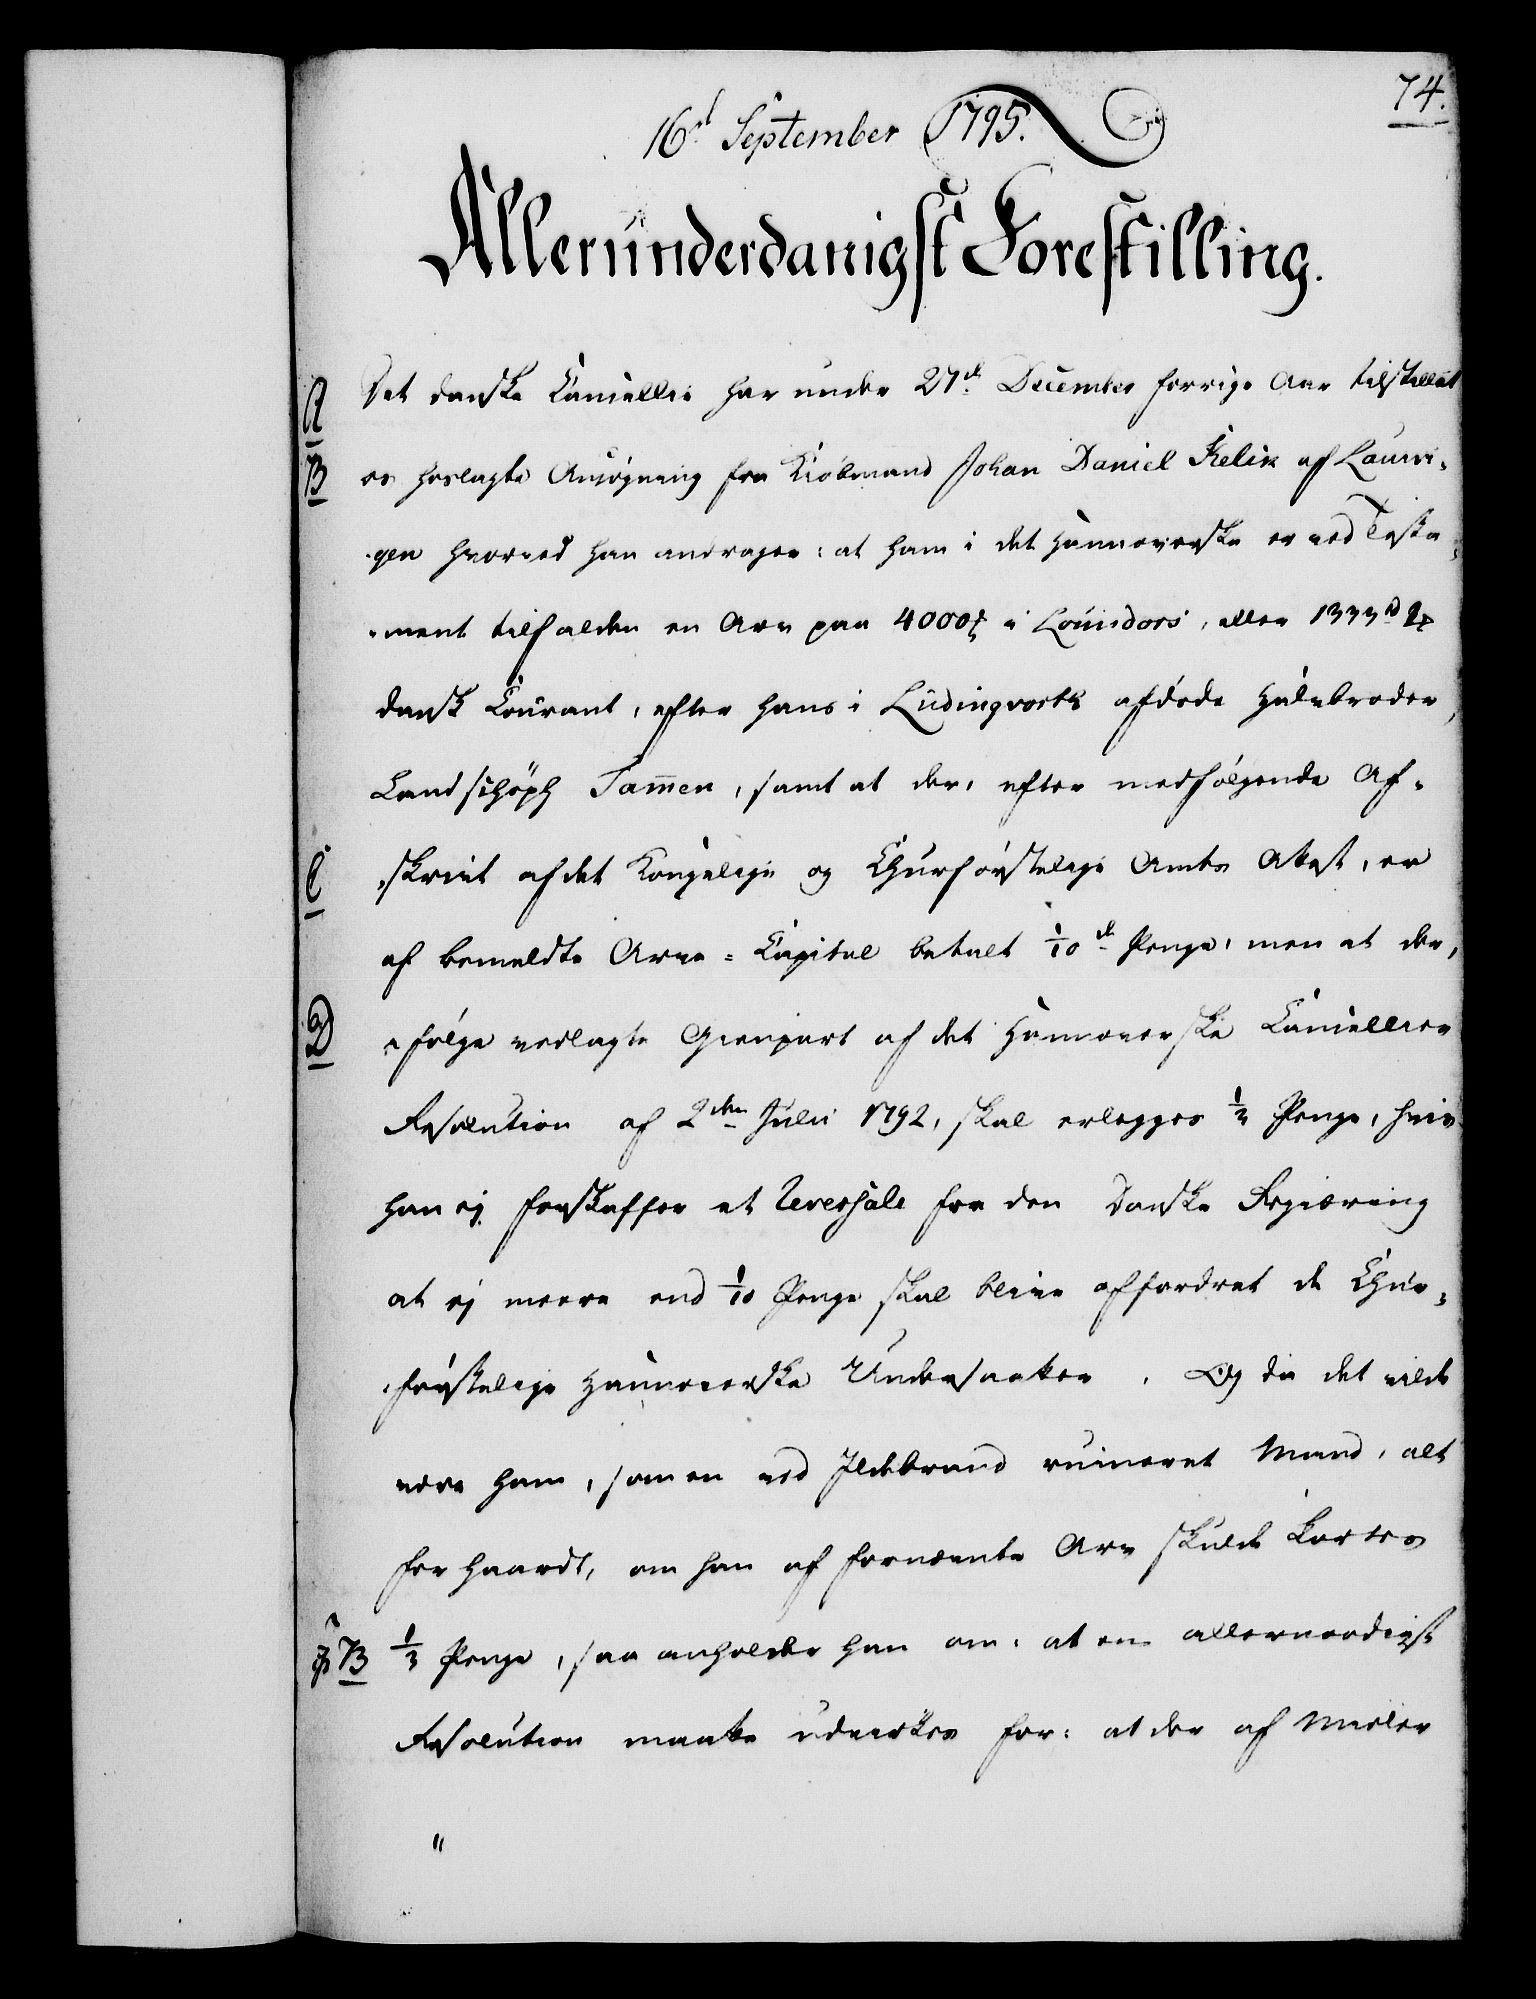 74.
16d September 1795.
Allerunderdanigst Forestilling.
A Det danske Cancellie har under 27de December forrige Aar tilstillet
B os hoslagte Ansøgning fra Kiøbmand Johan Daniel Kelin af Laurvi-
gen hvorved han andrager: at ham i det Hannoverske er ved Testa-
ment tilfalden en Arv paa 4000 i Louisdors, eller 1333
dansk Courant, efter hans i Lüdingvorth afdøde Halvbroder,
Landschöph Tam̅en, samt at der, efter medfølgende Af-
C skrivt af det Kongelige og Churførstelige Amts Attest, er
af bemeldte Arve-Capital betalt 1/10de Penge, men at der,
D ifølge vedlagte Gienpart af det Hannoverske Cancellies
Resolution af 2den Julii 1792, skal erlegges 1/3 Penge, hvis
han ej forskaffer et Reversale fra den Danske Regiering
at ej meere end 1/10 Penge skal blive affordret de Chur-
førstelige Hannoverske Undersaatter. Og da det vilde
være ham, som en ved Ildebrand ruineret Mand, alt
for haardt, om han af fornævnte Arv skulde kortes
B 1/3 Penge, saa anholder han om: at en allernaadigst
Resolution maatte udvirkes for: at der af Midler
"